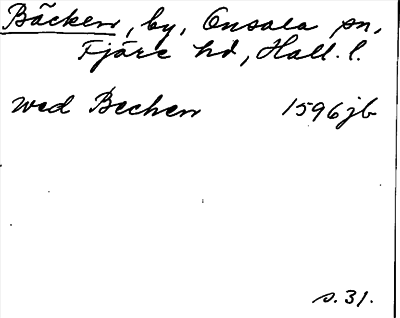 Bäcken, by, Onsala sn,
Fjäre hd, Hall. l.
wed Bechen 1596 jb
s. 31.